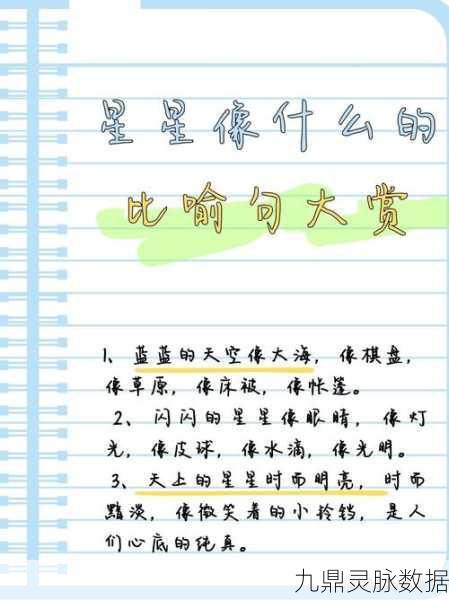 星星像什么的
比喻句大赏
1、蓝蓝的天空像大海，像棋盘，
像草原，像床被，像帐篷。
2、闪闪的星星像眼睛，像灯
光，像皮球，像水滴，像光明。
3、天上的星星时而明亮，时而
黯淡，像微笑着的小铃铛，是人
们心底的纯真。
九鼎灵脉数据